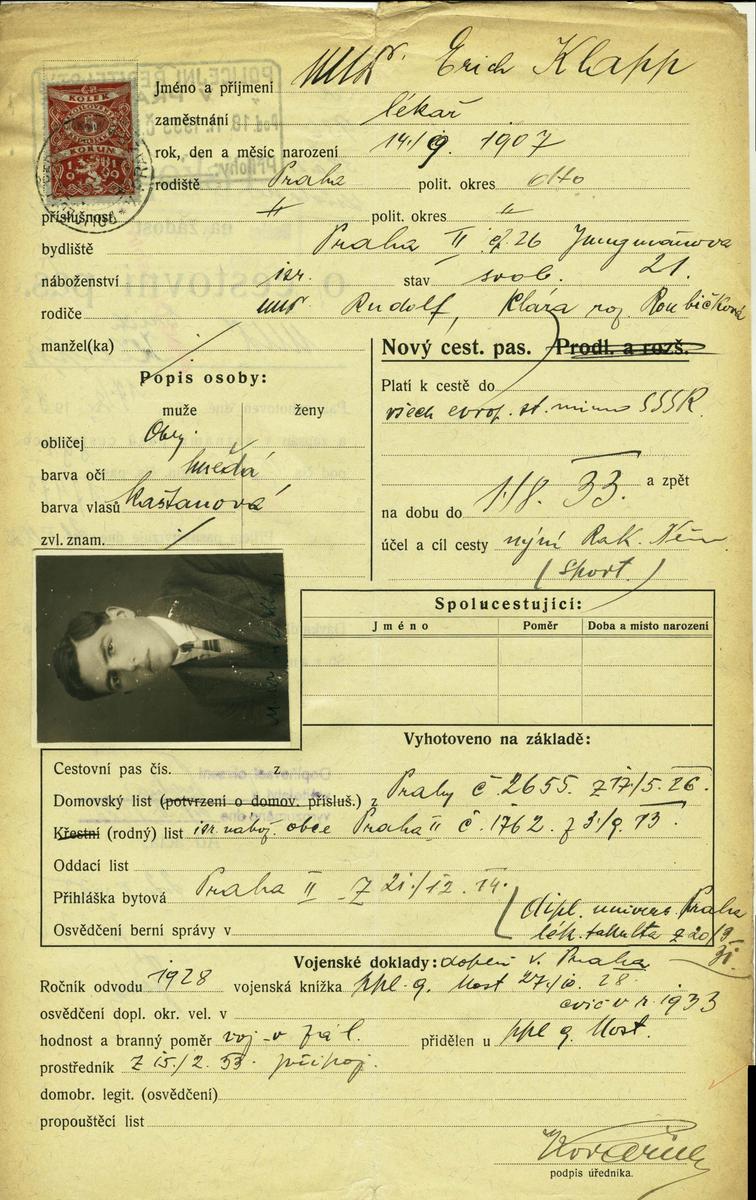 KOLEK
5
KORUN
Jméno a příjmení MUDr Erich Klapp
zaměstnání lékař
rok, den a měsíc narození 14./9. 1907
rodiště Praha polit. okres dtto
příslušnost " polit. okres "
bydliště Praha II čp. 26 Jungmanova
náboženství isr. stav svob. 21.
rodiče MUDr. Rudolf, Klára roz. Roubíčková
manžel(ka) /
Nový cest. pas. Prodl. a rozš.
Popis osoby:
muže ženy
obličej obvej.
barva očí hnědá
barva vlasů kaštanová
zvl. znam. /
Platí k cestě do
všech evrop. st. mimo SSSR.
na dobu do 1./8. 33. a zpět
účel a cíl cesty nyní Rak. Něm.
(sport.)
Spolucestující:
Jméno Poměr Doba a místo narození
Vyhotoveno na základě:
Cestovní pas čís. z
Domovský list (potvrzení o domov. přísluš.) z Prahy č. 2655. z 17/5. 26.
Křestní (rodný) list isr. nábož. obce Praha II č. 1762. z 3./9. 13.
Oddací list
Přihláška bytová Praha II z 21./12. 14.
Osvědčení berní správy v
dipl. univers. Praha
lék. fakulta z 20/9
31.
Vojenské doklady: dopln. v. Praha
Ročník odvodu 1928 vojenská knížka ppl. 9. Most 27./10. 28.
osvědčení dopl. okr. vel. v cvič v r. 1933
hodnost a branný poměr voj. v zál. přidělen u ppl 9 Most.
prostředník z 15./2. 33. připoj.
domobr. legit. (osvědčení)
propouštěcí list
podpis úředníka.